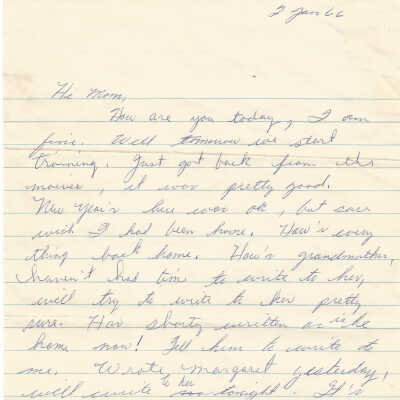 2 Jan 66
Hi Mom,
How are you today, I am
fine. Well tomorrow we start
training. Just got back from the
movies, it was pretty good.
New Year's here was ok, but sure
wish I had been home. How's every
thing back home. How's grandmother,
I haven't had time to write to her,
will try to write to her pretty
sure. Has Shorty written or is he
home now! Tell him to write to
me. Wrote Margaret yesterday,
will write to her tonight. It's